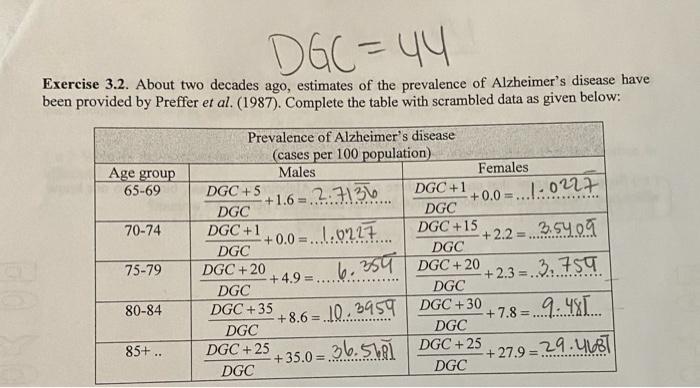 DGC = 44
Exercise 3.2. About two decades ago, estimates of the prevalence of Alzheimer's disease have
been provided by Preffer et al. (1987). Complete the table with scrambled data as given below:
Prevalence of Alzheimer's disease
(cases per 100 population)
Age group Males Females
65-69 (DGC + 5)/DGC + 1.6 = 2.7136 (DGC + 1)/DGC + 0.0 = 1.0227
70-74 (DGC + 1)/DGC + 0.0 = 1.0227 (DGC + 15)/DGC + 2.2 = 3.5409
75-79 (DGC + 20)/DGC + 4.9 = 6.354 (DGC + 20)/DGC + 2.3 = 3.754
80-84 (DGC + 35)/DGC + 8.6 = 10.3954 (DGC + 30)/DGC + 7.8 = 9.481
85+ .. (DGC + 25)/DGC + 35.0 = 36.5681 (DGC + 25)/DGC + 27.9 = 29.4681